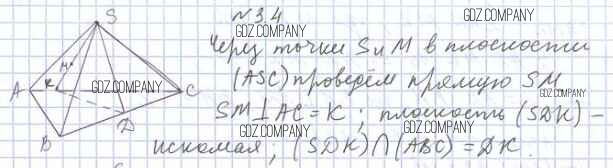 N 3.4
GDZ.COMPANY
GDZ.COMPANY
Через точки S и M в плоскости
(ASC) проведём прямую SM
GDZ.COMPANY
GDZ.COMPANY
SM ⊥ AC = K ; плоскость (SDK) –
GDZ.COMPANY
GDZ.COMPANY
искомая; (SDK) ∩ (ABC) = DK.
S
M
A
K
C
D
B